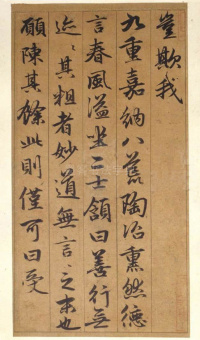 豈欺我
九重嘉納八荒陶冶熏然德
言春風溢坐三士頷曰善行無
迹迹其粗者妙道無言言之末也
願陳其餘此則僅可曰受